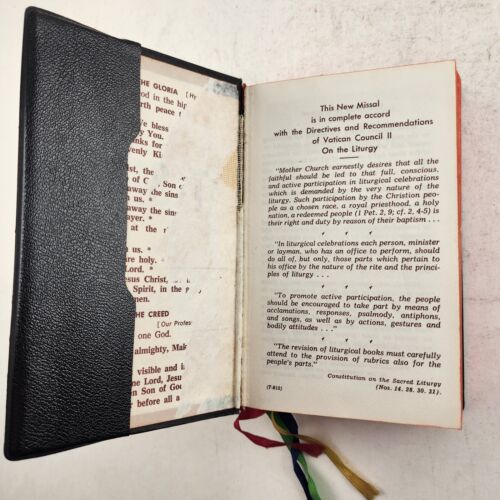 HE GLORIA [Hy
od in the hig
rth peace t
We bless
y You.
anks for
venly Ki
ist, the
of C , Son o
away the sins
n us. *
away the sins
at the r
n us. *
are holy.
Lord. *
Jesus Christ,
Spirit, in the
men.
HE CREED
[Our Profes
one God.
almighty, Mak
visible and i
ne Lord, Jesu
en Son of God
r before all a
This New Missal
is in complete accord
with the Directives and Recommendations
of Vatican Council II
On the Liturgy
"Mother Church earnestly desires that all the
faithful should be led to that full, conscious,
and active participation in liturgical celebrations
which is demanded by the very nature of the
liturgy. Such participation by the Christian peo-
ple as a chosen race, a royal priesthood, a holy
nation, a redeemed people (1 Pet. 2, 9; cf. 2, 4-5) is
their right and duty by reason of their baptism . . .
"In liturgical celebrations each person, minister
or layman, who has an office to perform, should
do all of, but only, those parts which pertain to
his office by the nature of the rite and the princi-
ples of liturgy . . .
"To promote active participation, the people
should be encouraged to take part by means of
acclamations, responses, psalmody, antiphons,
and songs, as well as by actions, gestures and
bodily attitudes . . ."
"The revision of liturgical books must carefully
attend to the provision of rubrics also for the
people's parts."
Constitution on the Sacred Liturgy
(T-810) (Nos. 14. 28. 30. 31).